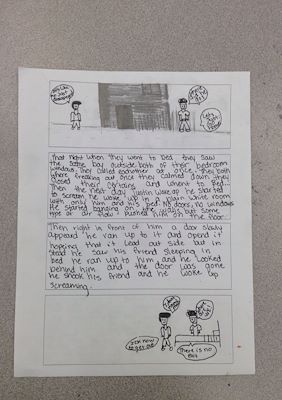 That night when they went to bed they saw
the same boy outside both of their bedroom
windows; they called eachother at once. They both
where freaking out once they calmed down they
closed their curtains and whent to bed...
Then the next day Justin woke up he started
to scream he woke up in a plain white room
with only him and his bed No doors, no windows
He started banging on the walls but some
type of air flow pushed him on the floor.
Then right in front of him a door slowly
appeard he ran up to it and opend it
hoping that it lead out side but in
stead he saw his friend sleeping in
bed he ran up to him and he looked
behind him and the door was gone
he shook his friend and he woke up
screaming.
There is no